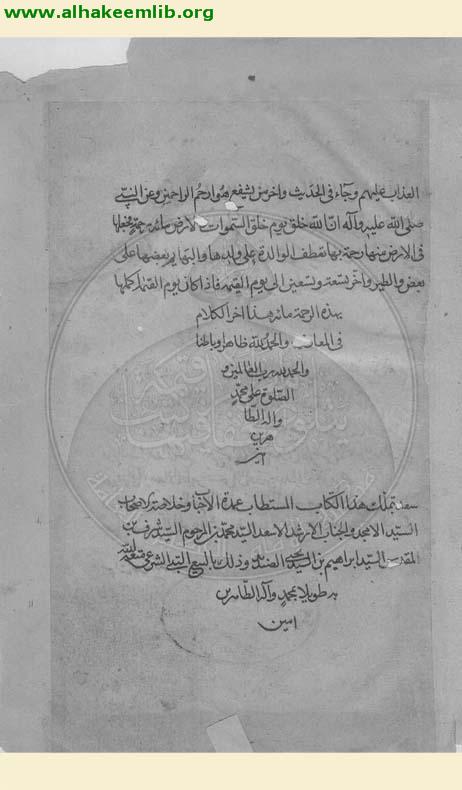 www.alhakeemlib.org
العذاب عليهم وجاء فى الحديث وآخر من يشفع هو ارحم الراحمين وعن النبى
صلى الله عليه وآله ان الله خلق يوم خلق السموات والارض مائة رحمة فجعل
فى الارض منها رحمة بها تعطف الوالدة على ولدها والبهايم بعضها على
بعض والطير وأخر تسعة وتسعين الى يوم القيمة فاذا كان يوم القيمة اكملها
بهذه الرحمة مائة هذا اخر الكلام
فى المعاد والحمد لله ظاهرا وباطنا
والحمد لله رب العالمين و
الصلوة على محمد
واله الطا
هرين
امين
تملك هذا الكتاب المستطاب عمدة وخلاصة
السيد الامجد والجناب الارشد الاسعد السيد محمد بن المرحوم السيد شرف بن
المقدس السيد ابراهيم بن السيد يحيى وذلك بالبيع الشرعى
به طويلا بمحمد وآله الطاهرين
امين